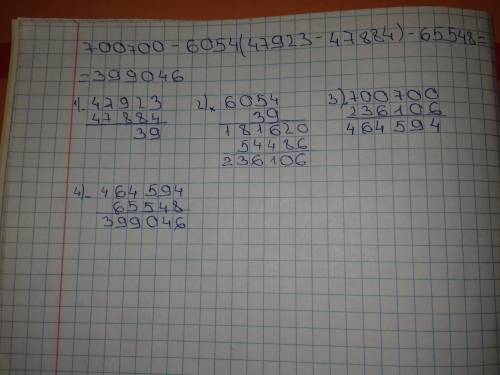 700700 - 6054(47923 - 47884) - 65548 =
= 399046
1) - 47923
47884
39
2) × 6054
39
181620
54486
236106
3) - 700700
236106
464594
4) - 464594
65548
399046